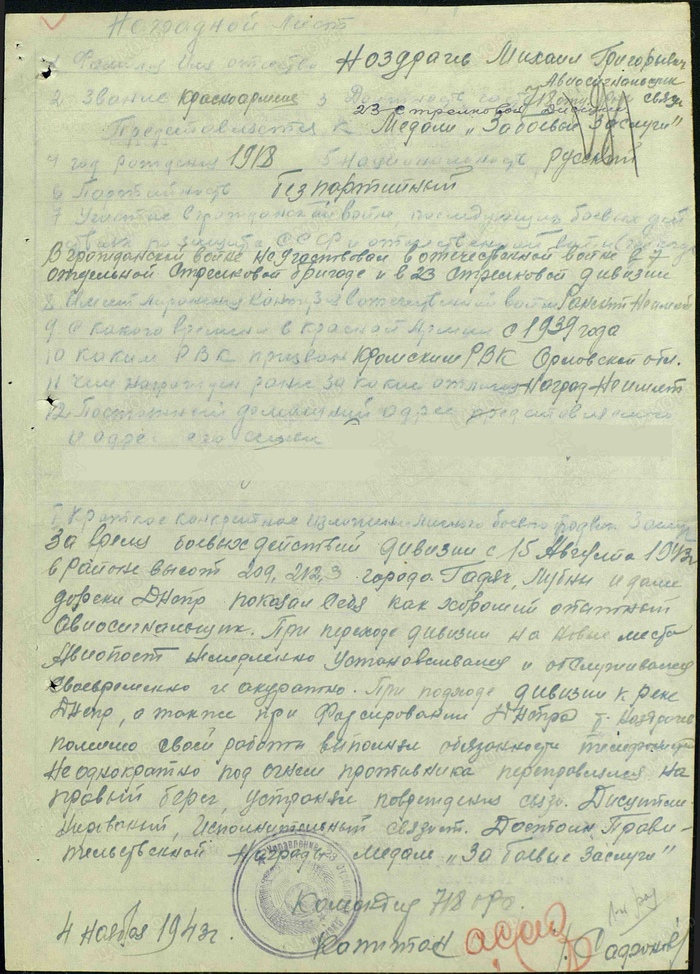 Наградной лист
1 Фамилия Имя отчество Ноздрачь Михаил Григорьевич
Авиосигнальщик
2 Звание Красноармеец 3 Должность 718 отд. связи
23 Стрелковой Дивизии
Представляется к Медали „За боевые Заслуги"
4 год рождения 1918 5 Национальность Русский
6 Партийность безпартийный
7 Участие в гражданской войне последующих боевых дей
ствиях по защите СССР и отечественной войне
В гражданской войне не участвовал в отечественной войне в 7
отдельной Стрелковой бригаде и в 23 Стрелковой дивизии
8 Имеет ли ранения в отечественной войне Ранений Неимеет
9 С какого времени в красной Армии с 1939 года
10 Каким РВК призван Кромским РВК Орловской обл.
11 Чем награжден ранее за какие отличия Наград Неимеет
12 Постоянный домашний адрес представляемого
и адрес его семьи
I Краткое конкретное изложение личного боевого подвига
За время боевых действий дивизии с 15 Августа 1943г
в районе высот 209, 212,3 города Гадяч, Лубны и далее
дореки Днепр показал себя как хороший отличный
Авиосигнальщик. При переходе дивизии на новые места
Авиопост немедленно устанавливался и обслуживался
своевременно и акуратно. При подходе дивизии к реке
Днепр, а также при форсировании Днепра т. Ноздрачь
помимо своей работы выполнял обязанности
Неоднократно под огнем противника переправлялся на
правый берег, устраняя повреждения связи. Дисципли
нированый, исполнительный связист. Достоин Прави-
тельственной Награды медали „За боевые Заслуги"
Командир 718
4 ноября 1943г. Капитан Сафонов